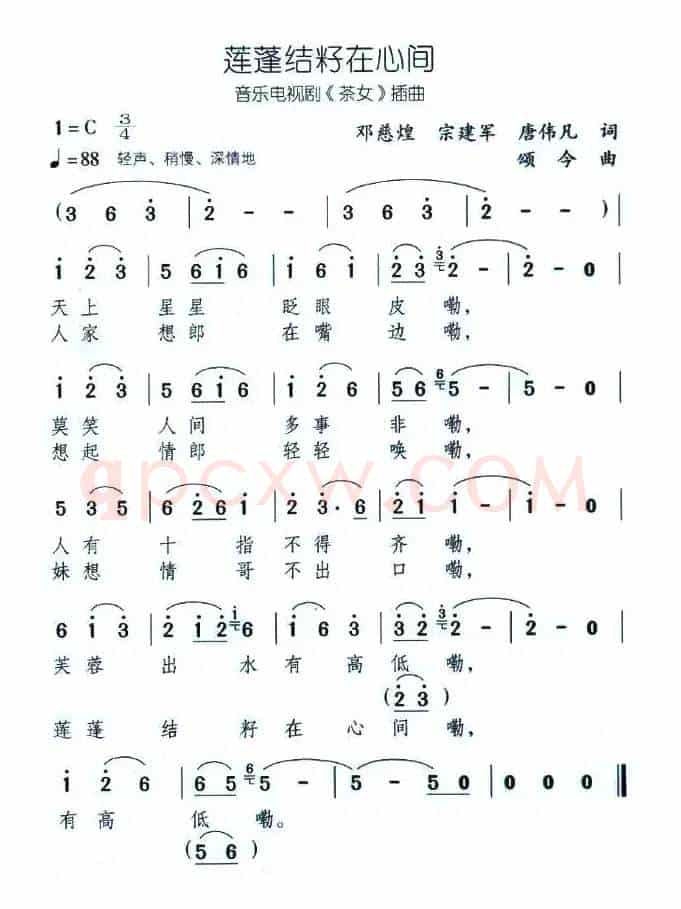 莲蓬结籽在心间
音乐电视剧《茶女》插曲
1=C 3/4 邓慈煌 宗建军 唐伟凡 词
♩=88 轻声、稍慢、深情地 颂今 曲
(3 6 3̇ | 2̇ - - | 3 6 3̇ | 2̇ - - ) |
1̇ 2̇ 3̇ | 5 6 1̇ 6 | 1̇ 6 1̇ | 2̇ 3̇ 3̇ 2̇ - | 2̇ - 0 |
天上 星星 眨眼 皮 嘞,
人家 想郎 在嘴 边 嘞,
1̇ 2̇ 3̇ | 5 6 1̇ 6 | 1̇ 3̇ 2̇ | 5 6 6 5 - | 5 - 0 |
莫笑 人间 多事 非 嘞,
想起 情郎 轻轻 唤 嘞,
qpcxw.COM
5 3 5 | 6 2̇ 6 1̇ | 2̇ 3̇· 6 | 2̇ 1̇ 1̇ - | 1̇ - 0 |
人有 十指 不得 齐 嘞,
妹想 情哥 不出 口 嘞,
6 1̇ 3̇ | 2̇ 1̇ 2̇ 1̇ 6 | 6 1̇ 3̇ | 3̇ 2̇ 3̇ 2̇ - | 2̇ - 0 |
芙蓉 出 水有高 低 嘞,
(2̇ 3̇)
莲蓬 结 籽在心 间 嘞,
1̇ 2̇ 6 | 6 5 6 5 - | 5 - 5 0 | 0 0 0 ‖
有高 低 嘞。
(5 6)